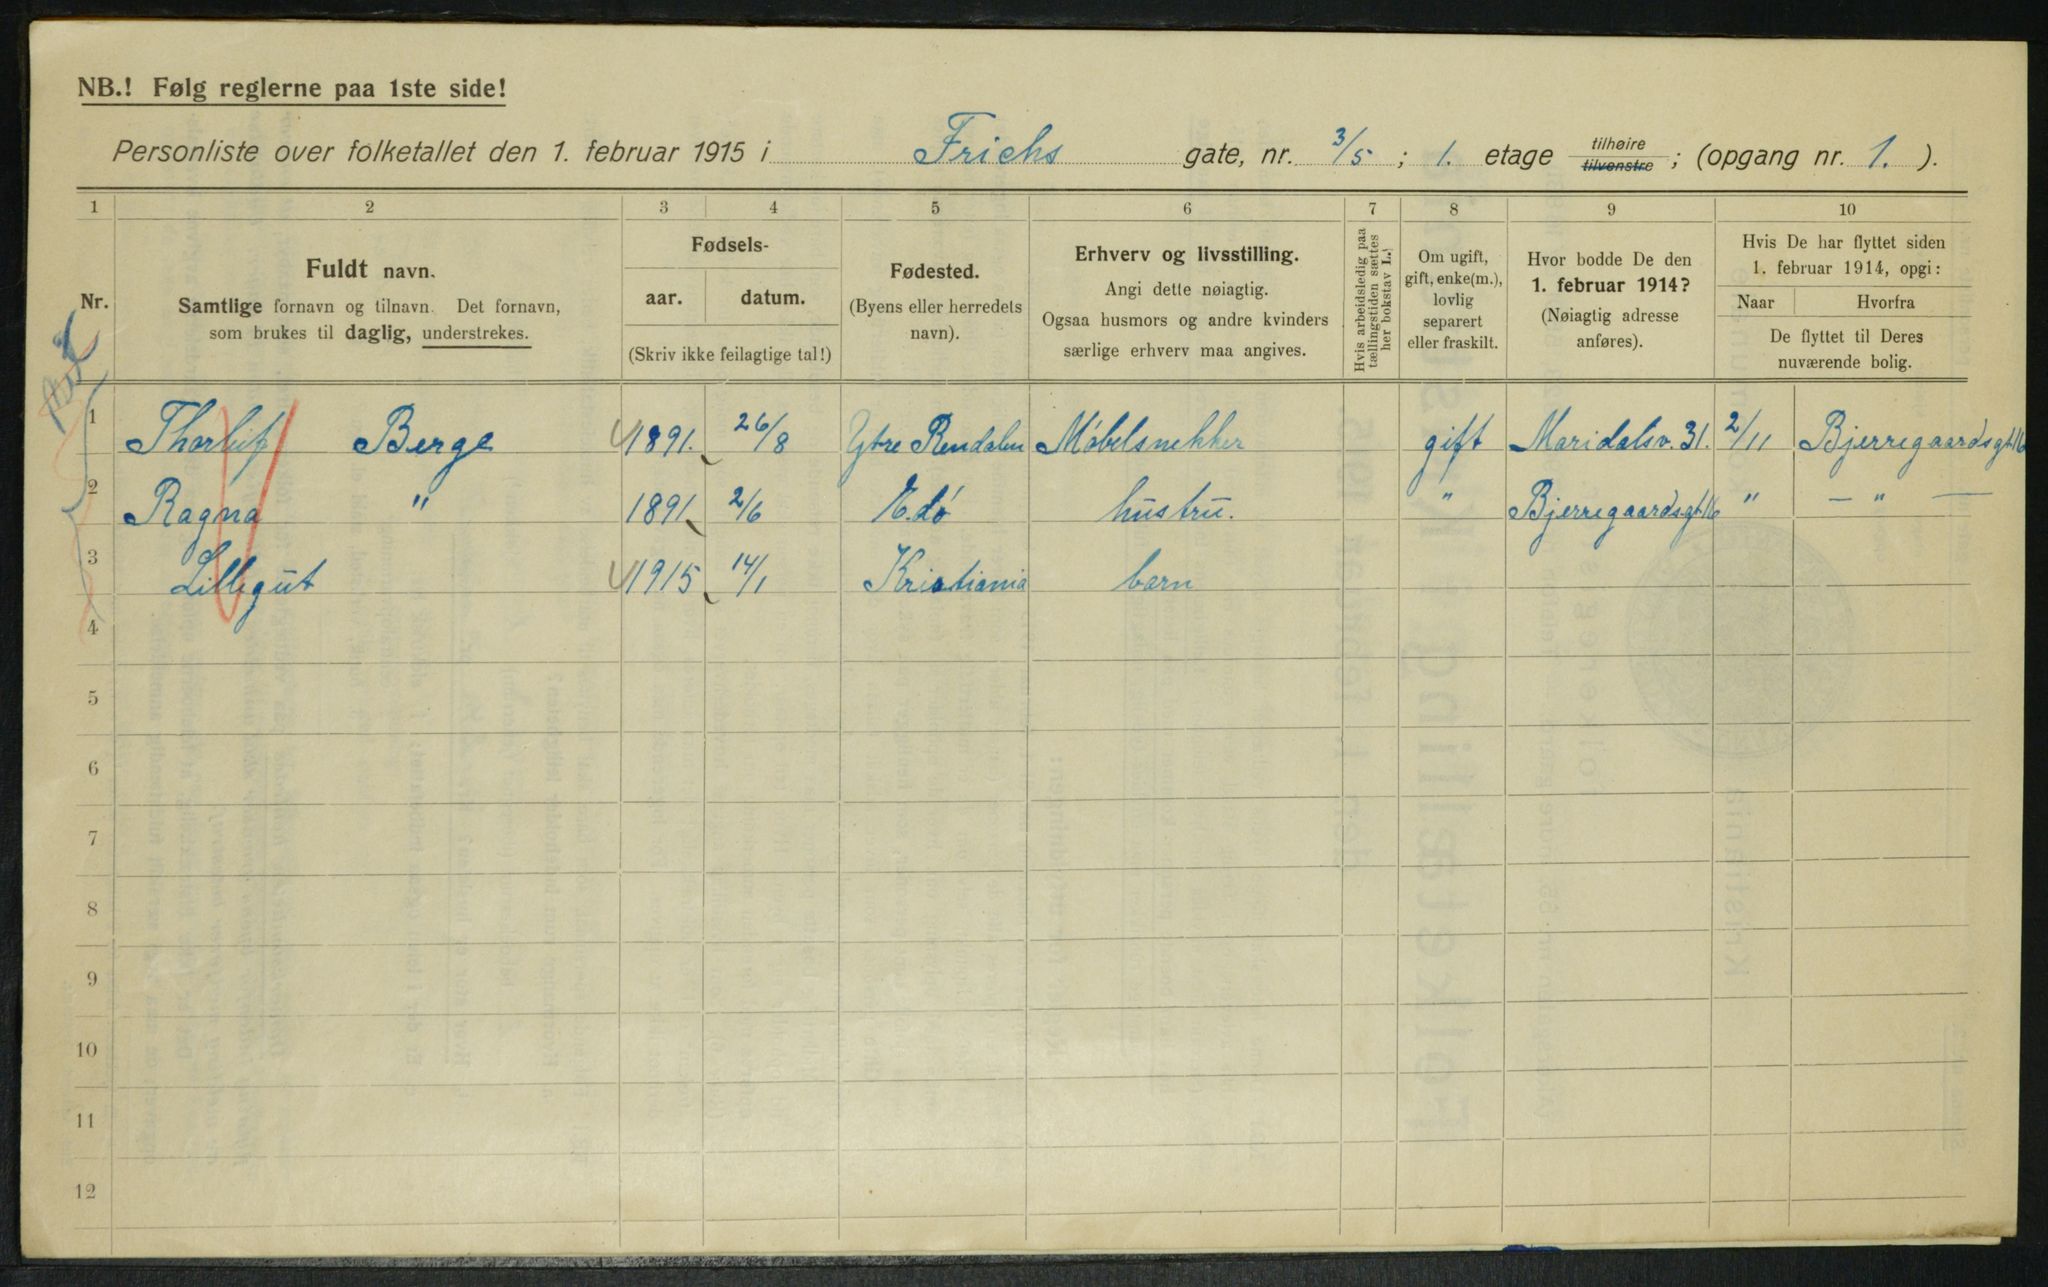 NB.! Følg reglerne paa 1ste side!
Personliste over folketallet den 1. februar 1915 i Frichs gate, nr. 3/5; 1. etage tilhøire tilvenstre; (opgang nr. 1.).
1 2 3 4 5 6 7 8 9 10
Nr.
Fuldt navn.
Samtlige fornavn og tilnavn. Det fornavn,
som brukes til daglig, understrekes.
Fødsels-
aar. datum.
(Skriv ikke feilagtige tal!)
Fødested.
(Byens eller herredets
navn).
Erhverv og livsstilling.
Angi dette nøiagtig.
Ogsaa husmors og andre kvinders
særlige erhverv maa angives.
Hvis arbeidsledig paa
tællingstiden sættes
her bokstav L.
Om ugift,
gift, enke(m.),
lovlig
separert
eller fraskilt.
Hvor bodde De den
1. februar 1914?
(Nøiagtig adresse
anføres).
Hvis De har flyttet siden
1. februar 1914, opgi:
Naar Hvorfra
De flyttet til Deres
nuværende bolig.
1 Thorleif Berge 1891. 26/8 Ytre Rendalen Møbelsnekker gift Maridalsv. 31. 2/11 Bjerregaardsgt 16
2 Ragna " 1891 2/6 hustru. " Bjerregaardsgt 16 " — " —
3 Lillegut 1915 14/1 Kristiania barn
4
5
6
7
8
9
10
11
12